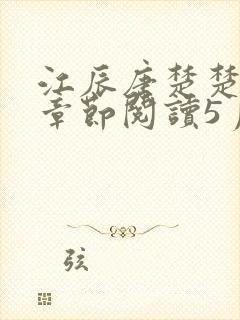 江辰唐楚楚
章節閱讀5
弦